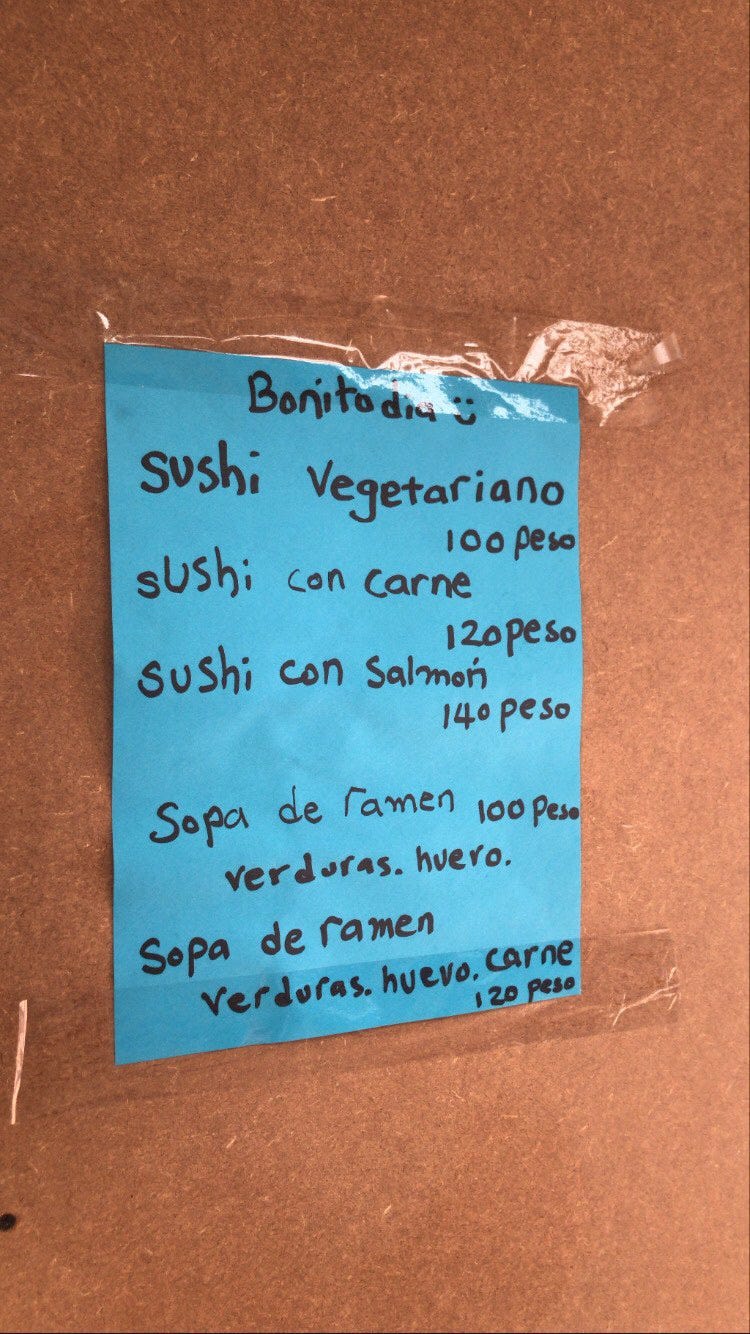 Bonito dia ü
Sushi Vegetariano
100 peso
sushi con carne
120 peso
sushi con salmoń
140 peso
Sopa de ramen 100 Peso
verduras. huero.
Sopa de ramen
verduras. huevo. carne
120 peso